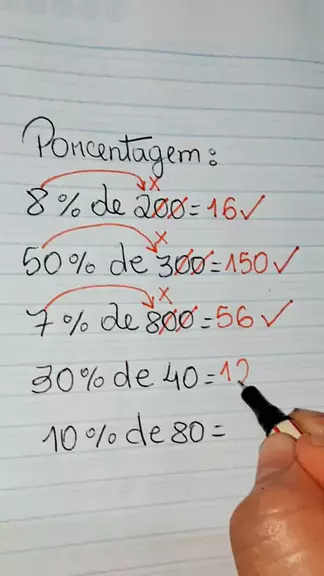 Porcentagem:
8% de 200=16✓
50% de 300=150✓
7% de 800=56✓
30% de 40=12
10% de 80=